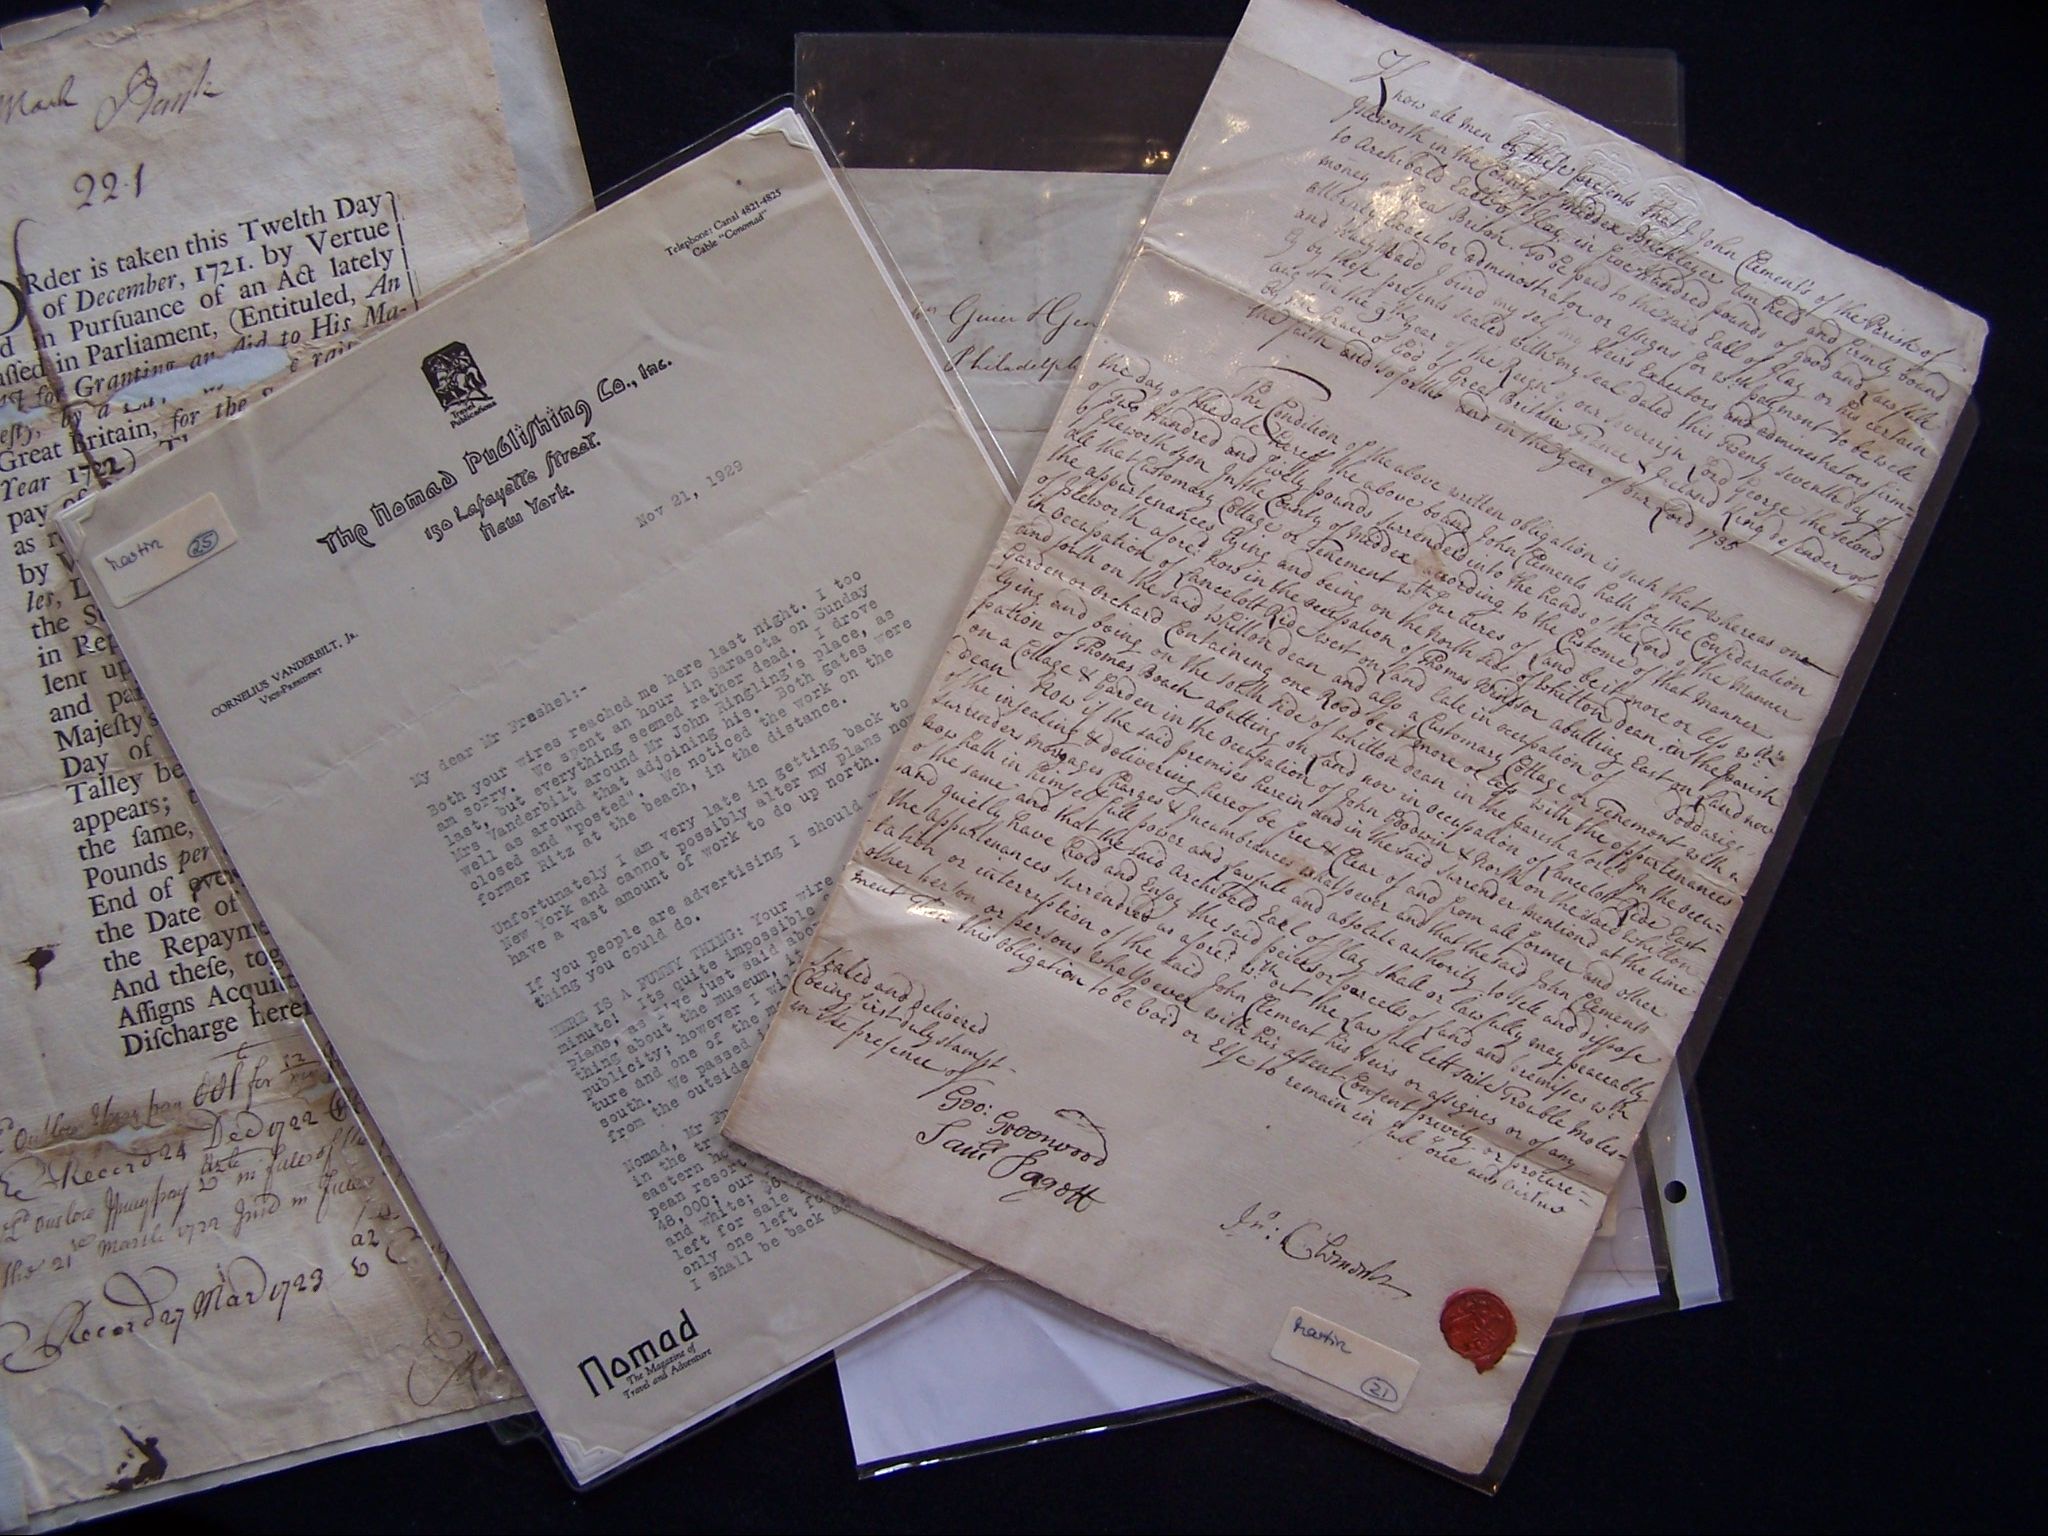 Mark
22.1
Rder is taken this Twelth Day
of December, 1721. by Vertue
d in Purſuance of an Act lately
aſſed in Parliament, (Entituled, An
for Granting an Aid to His Ma-
eſty, by a
Great Britain, for the
Year 1722.)
pay of
as
by V
les, L
the
in Rep
lent up
and pa
Majeſty's
Day of
Talley be
appears;
the ſame,
Pounds per
End of every
the Date of
the Repayme
And theſe, tog
Aſſigns Acqui
Diſcharge herei
Record 24 Dec 1722
Record 27 Mar 1723
Telephone: Canal 4821-4825
Cable "Conomad"
Travel
Publications
The Nomad Publishing Co., Inc.
150 Lafayette Street.
New York.
Nov 21, 1929
martin 25
CORNELIUS VANDERBILT, Jr.
VICE-PRESIDENT
My dear Mr Freshel:-
Both your wires reached me here last night. I too
am sorry. We spent an hour in Sarasota on Sunday
last, but everything seemed rather dead. I drove
Mrs Vanderbilt around Mr John Ringling's place, as
well as around that adjoining his. Both gates were
closed and "posted". We noticed the work on the
former Ritz at the beach, in the distance.
Unfortunately I am very late in getting back to
New York and cannot possibly alter my plans now
have a vast amount of work to do up north.
If you people are advertising I should
thing you could do.
HERE IS A FUNNY THING: Your wire
minute! Its quite impossible
plans, as I've just said abo
thing about the museum, it
publicity; however I wil
ture and one of the m
south. We passed
from the outside
Nomad, Mr Fr
in the tr
eastern h
pean resort
48,000; our
and white;
left for sale
only one left fo
I shall be back
Nomad
The Magazine of
Travel and Adventure
Philadelph
Know all men by these presents that I John Clements of the Parish of
Isleworth in the County of Middx Bricklayer am held and firmly bound
to Archibald Earl of Ilay in five Hundred pounds of good and Lawfull
money of Great Britain to be paid to the said Earl of Ilay or his certain
attorney Executor administrator or assigns for wch payment to be well
and truly Made I bind my self my Heirs Executors and administrators firm-
ly by these presents sealed with my seal dated this Twenty seventh day of
august in the 9th year of the Reign of our Sovereign Lord George the Second
by the Grace of God of Great Britain France & Ireland King defender of
the faith and so forth and in the year of our Lord 1735
The Condition of the above written obligation is such that whereas
the day of the date hereof the above bound John Clements hath for the Consideration
of Two Hundred and fivety pounds surrendred into the hands of the Lord of the Mannor
of Isleworth Syon In the County of Middx according to the Custome of that Mannor
all that Customary Cottage or Tenement wth four acres of Land be it more or less wth
the appurtenances lying and being on the North side of Whitton dean in the parish
of Isleworth afore: Now in the occupation of Thomas Windsor abutting East on Land now
in occupation of Lancelott Ride west on Land late in occupation of Goddarige
and south on the said Whitton dean and also a Customary Cottage or Tenement with a
Garden or orchard Containing one Rood be it more or less with the appurtenances
lying and being on the south side of Whitton dean in the parish afore: In the occu-
pation of Thomas Boach abutting on Land now in occupation of Lancelott Ride East
on a Cottage & Garden in the occupation of John Goodwin & North on the said Whitton
dean Now if the said premises herein and in the said surrender mentiond at the time
of the insealing & delivering hereof be free & Clear of and from all former and other
surrenders morgages Charges & Incumbrances whatsoever and that the said John Clements
now hath in himself full power and Lawfull and absolute authority to sell and dispose
of the same and that the said archibald Earl of Ilay shall or lawfully may peaceably
and quietly have hold and Enjoy the said peices or parcels of Land and premisses wth
the appurtenances surrendred as afore: wthout the Lawfull lett suite Trouble moles-
tation or interruption of the said John Clement his Heirs or assignes or of any
other person or persons whatsoever with his assent Consent privity or procure-
ment Then this obligation to be void or Else to remain in full force and Virtue
Sealed and delivered
(being first duly stampt
in the presence of
Geo: Greenwood
Saml Pagott
Jno: Clements
martin
21